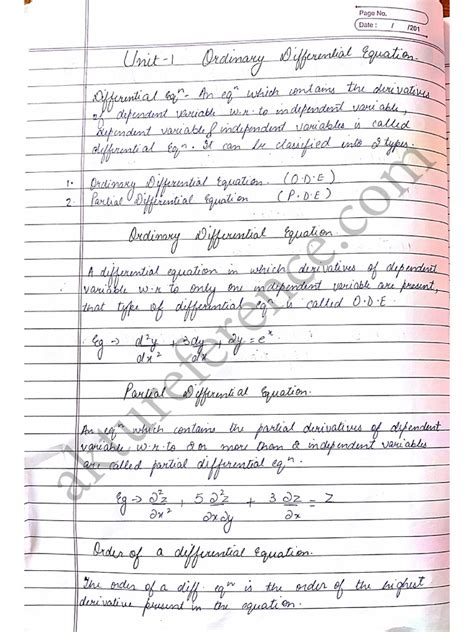 Page No.
Date : / /201
Unit-1 Ordinary Differential Equation.
Differential Eqⁿ - An eqⁿ which contains the derivatives
of dependent variable w.r.to independent variable,
dependent variable & independent variables is called
differential Eqⁿ. It can be classified into 2 types.
1. Ordinary Differential Equation. (O.D.E)
2. Partial Differential Equation (P.D.E)
Ordinary Differential Equation
A differential equation in which derivatives of dependent
variable w.r to only one independent variable are present,
that type of differential eqⁿ is called O.D.E
Eg → d²y/dx² 3dy/dx 2y = eˣ
Partial Differential Equation.
An eqⁿ which contains the partial derivatives of dependent
variable w.r.to 2 or more than 2 independent variables
are called partial differential eqⁿ.
Eg → ∂²z/∂x² + 5 ∂²z/∂x∂y + 3 ∂z/∂x = z
Order of a differential Equation.
The order of a diff. eqⁿ is the order of the highest
derivative present in the equation.
aktureference.com